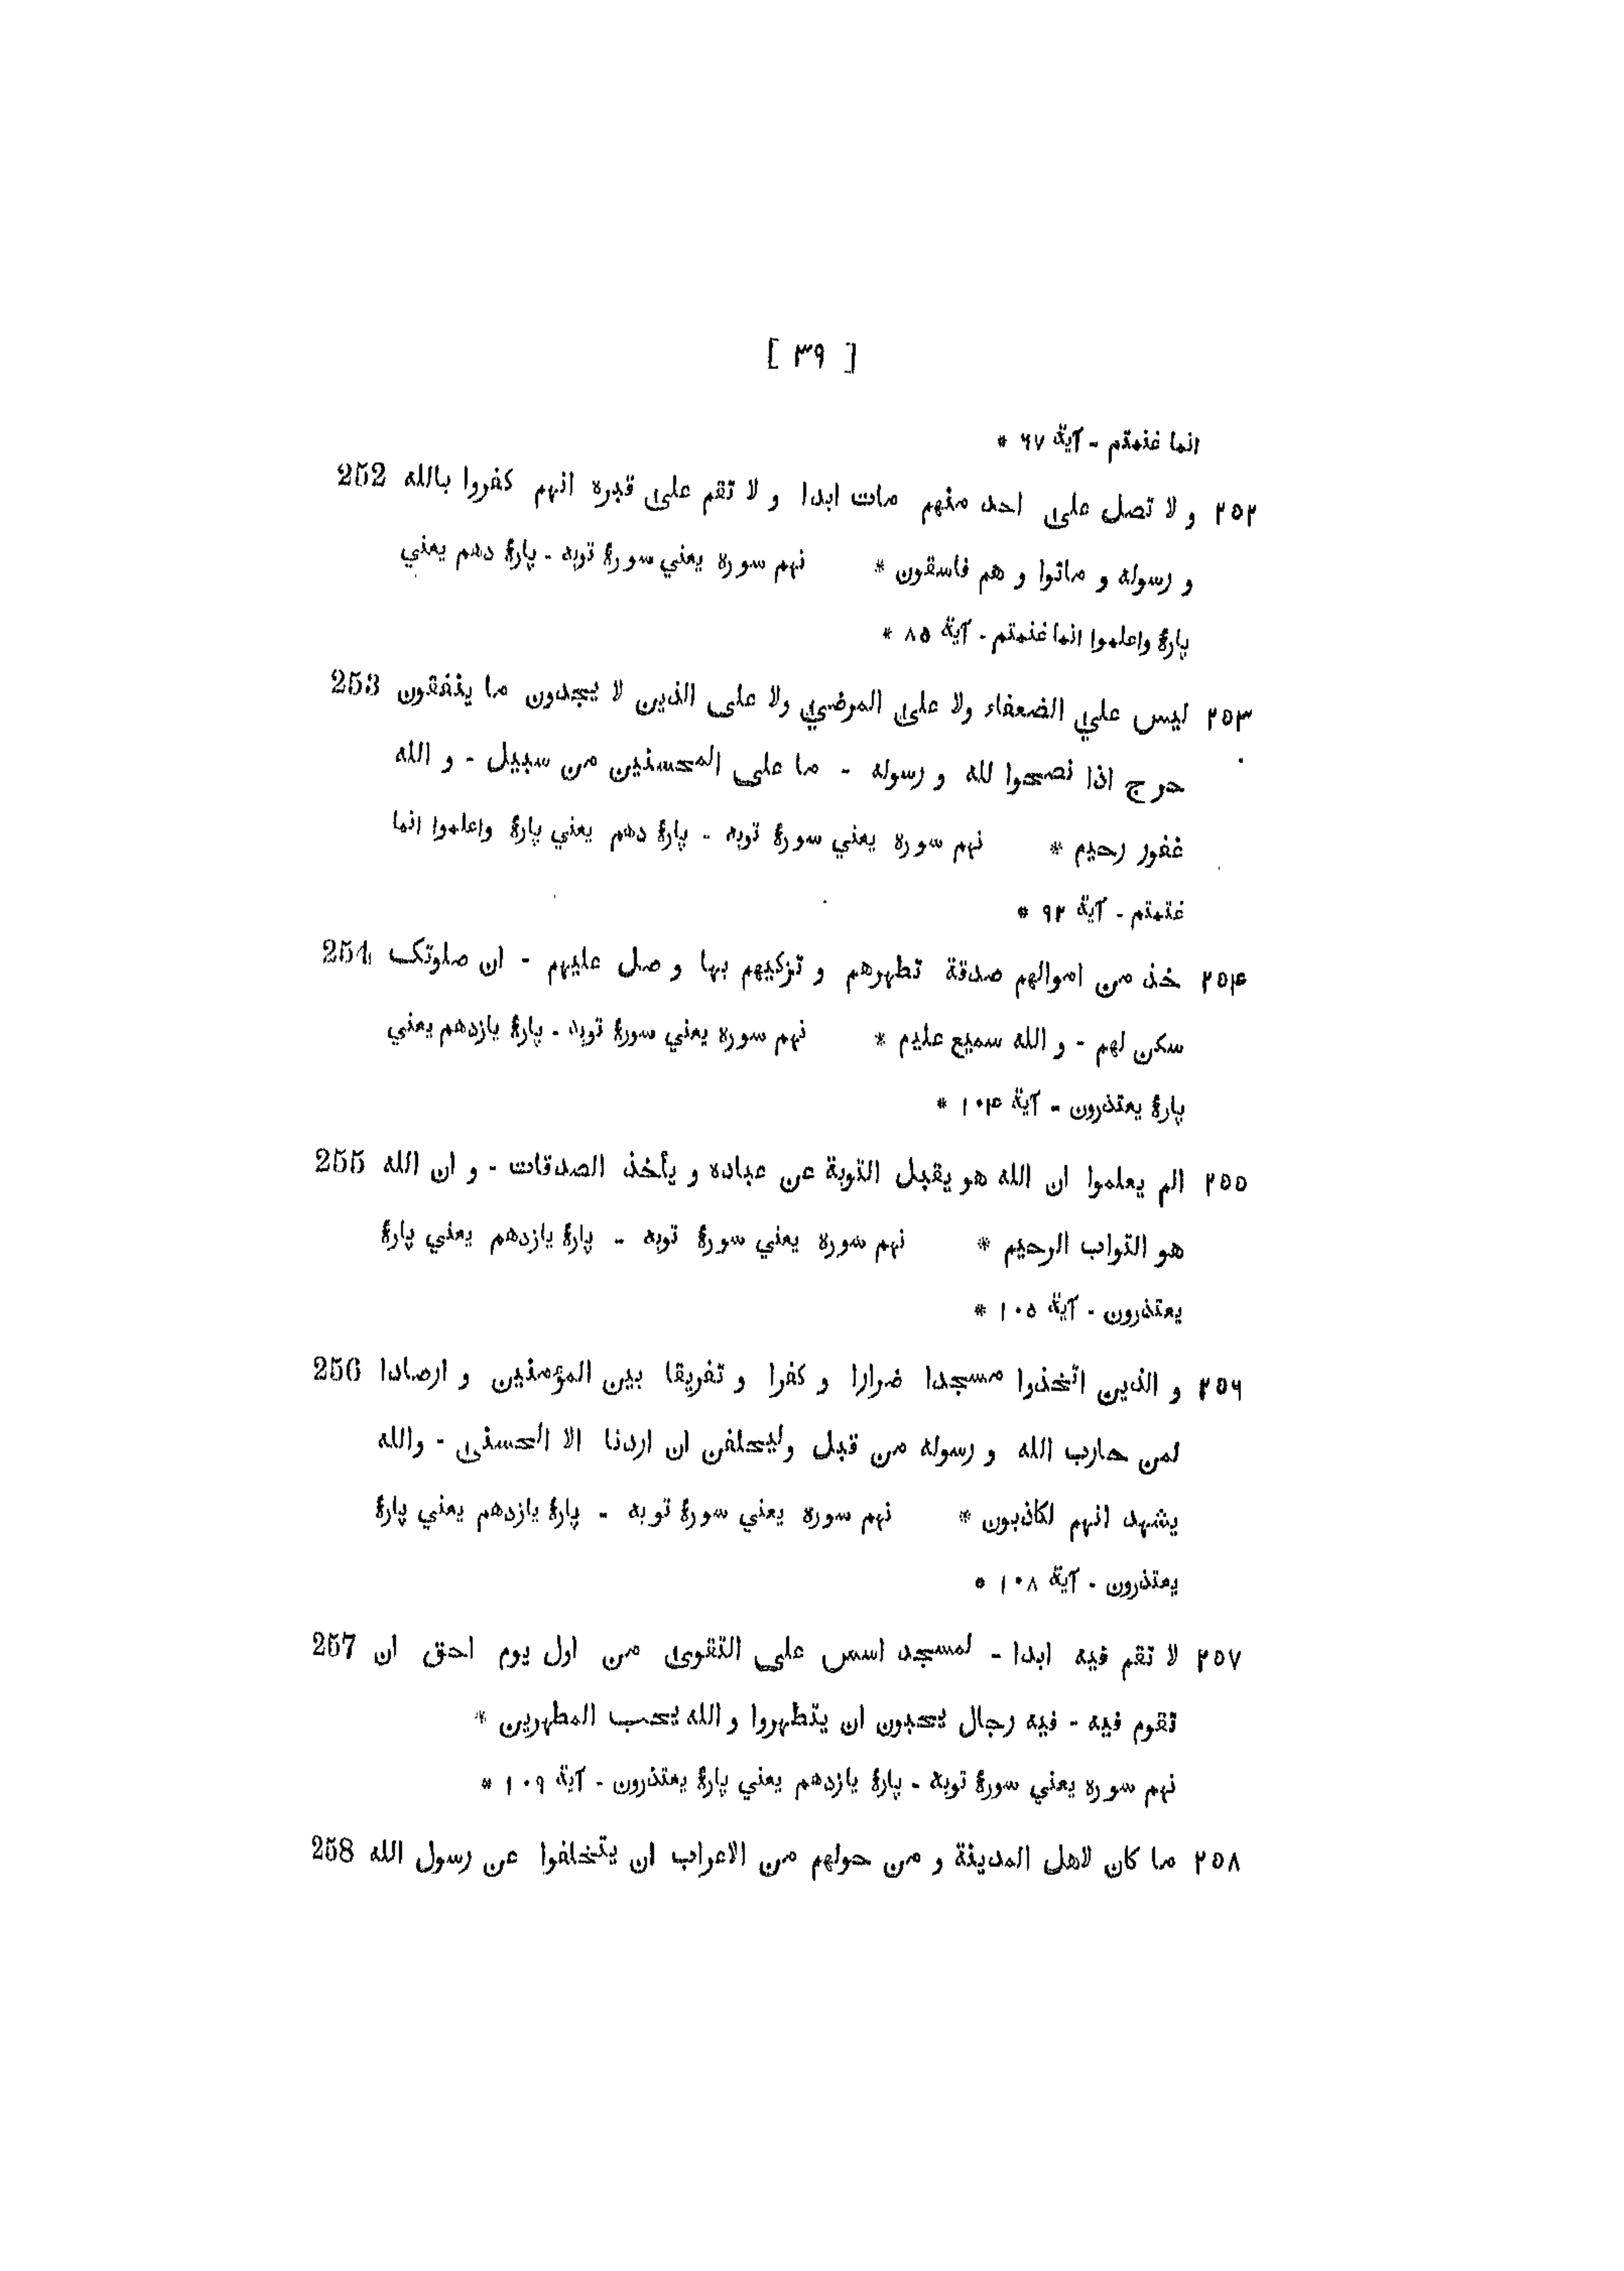 [ ۳۹ ]
انما غنمتم - آیة ۶۷ *
۲۵۲ و لا تصل علی احد منهم مات ابدا و لا تقم علی قبره انهم کفروا بالله 252
و رسوله و ماتوا و هم فاسقون * نهم سوره یعني سورۀ توبه - پارۀ دهم یعني
پارۀ واعلموا انما غنمتم - آیة ۸۵ *
۲۵۳ لیس علي الضعفاء ولا علی المرضي ولا علی الذین لا یجدون ما ینفقون 253
حرج اذا نصحوا لله و رسوله - ما علی المحسنین من سبیل - و الله
غفور رحیم * نهم سوره یعني سورۀ توبه - پارۀ دهم یعني پارۀ واعلموا انما
غنمتم - آیة ۹۲ *
۲۵۴ خذ من اموالهم صدقة تطهرهم و تزکیهم بها و صل علیهم - ان صلوتک 254
سکن لهم - و الله سمیع علیم * نهم سوره یعني سورۀ توبه - پارۀ یازدهم یعني
پارۀ یعتذرون - آیة ۱۰۴ *
۲۵۵ الم یعلموا ان الله هو یقبل التوبة عن عباده و یأخذ الصدقات - و ان الله 255
هو التواب الرحیم * نهم سوره یعني سورۀ توبه - پارۀ یازدهم یعني پارۀ
یعتذرون - آیة ۱۰۵ *
۲۵۶ و الذین اتخذوا مسجدا ضرارا و کفرا و تفریقا بین المؤمنین و ارصادا 256
لمن حارب الله و رسوله من قبل ولیحلفن ان اردنا الا الحسنی - والله
یشهد انهم لکاذبون * نهم سوره یعني سورۀ توبه - پارۀ یازدهم یعني پارۀ
یعتذرون - آیة ۱۰۸ *
۲۵۷ لا تقم فیه ابدا - لمسجد اسس علی التقوی من اول یوم احق ان 257
تقوم فیه - فیه رجال یحبون ان یتطهروا و الله یحب المطهرین *
نهم سوره یعني سورۀ توبه - پارۀ یازدهم یعني پارۀ یعتذرون - آیة ۱۰۹ *
۲۵۸ ما کان لاهل المدینة و من حولهم من الاعراب ان یتخلفوا عن رسول الله 258